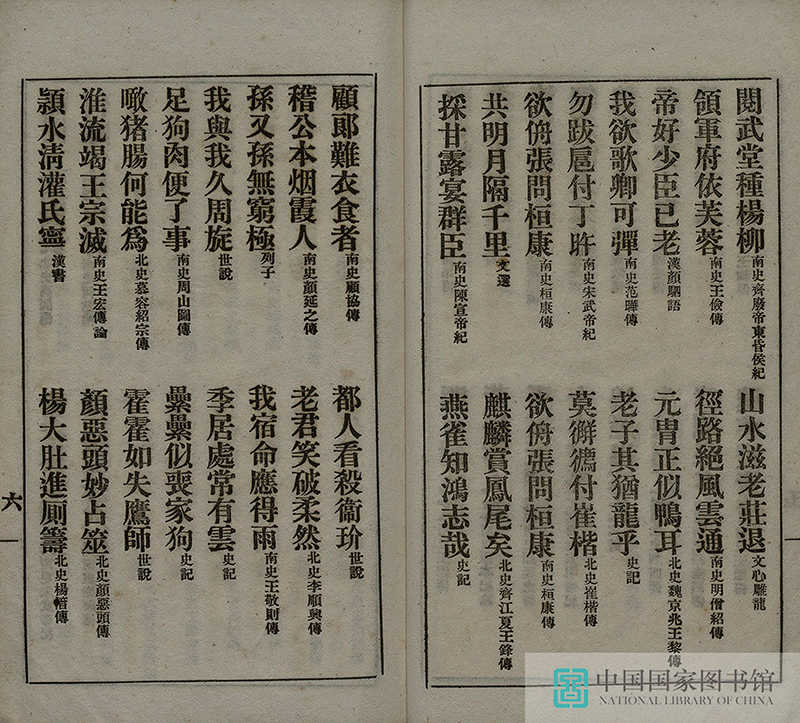 閱武堂種楊柳南史齊廢帝東昏侯紀 山水滋老莊退文心雕龍
領軍府依芙蓉南史王儉傳 徑路絕風雲通南史明僧紹傳
帝好少臣已老漢顏駟語 元胄正似鴨耳北史魏京兆王黎傳
我欲歌卿可彈南史范曄傳 老子其猶龍乎史記
勿跋扈付丁旿南史宋武帝紀 莫獬豸付崔楷北史崔楷傳
欲侜張問桓康南史桓康傳 欲侜張問桓康南史桓康傳
共明月隔千里文選 麒麟賞鳳尾矣北史齊江夏王鋒傳
採甘露宴群臣南史陳宣帝紀 燕雀知鴻志哉史記
顧郎難衣食者南史顧協傳 都人看殺衞玠世說
稽公本烟霞人南史顏延之傳 老君笑破柔然北史李順興傳
孫又孫無窮極列子 我宿命應得雨南史王敬則傳
我與我久周旋世說 季居處常有雲史記
足狗肉便了事南史周山圖傳 纍纍似喪家狗史記
噉猪腸何能爲北史慕容紹宗傳 霍霍如失鷹師世說
淮流竭王宗滅南史王宏傳論 顏惡頭妙占筮北史顏惡頭傳
潁水淸灌氏寧漢書 楊大肚進厠籌北史楊愔傳
六
中国国家图书馆
NATIONAL LIBRARY OF CHINA